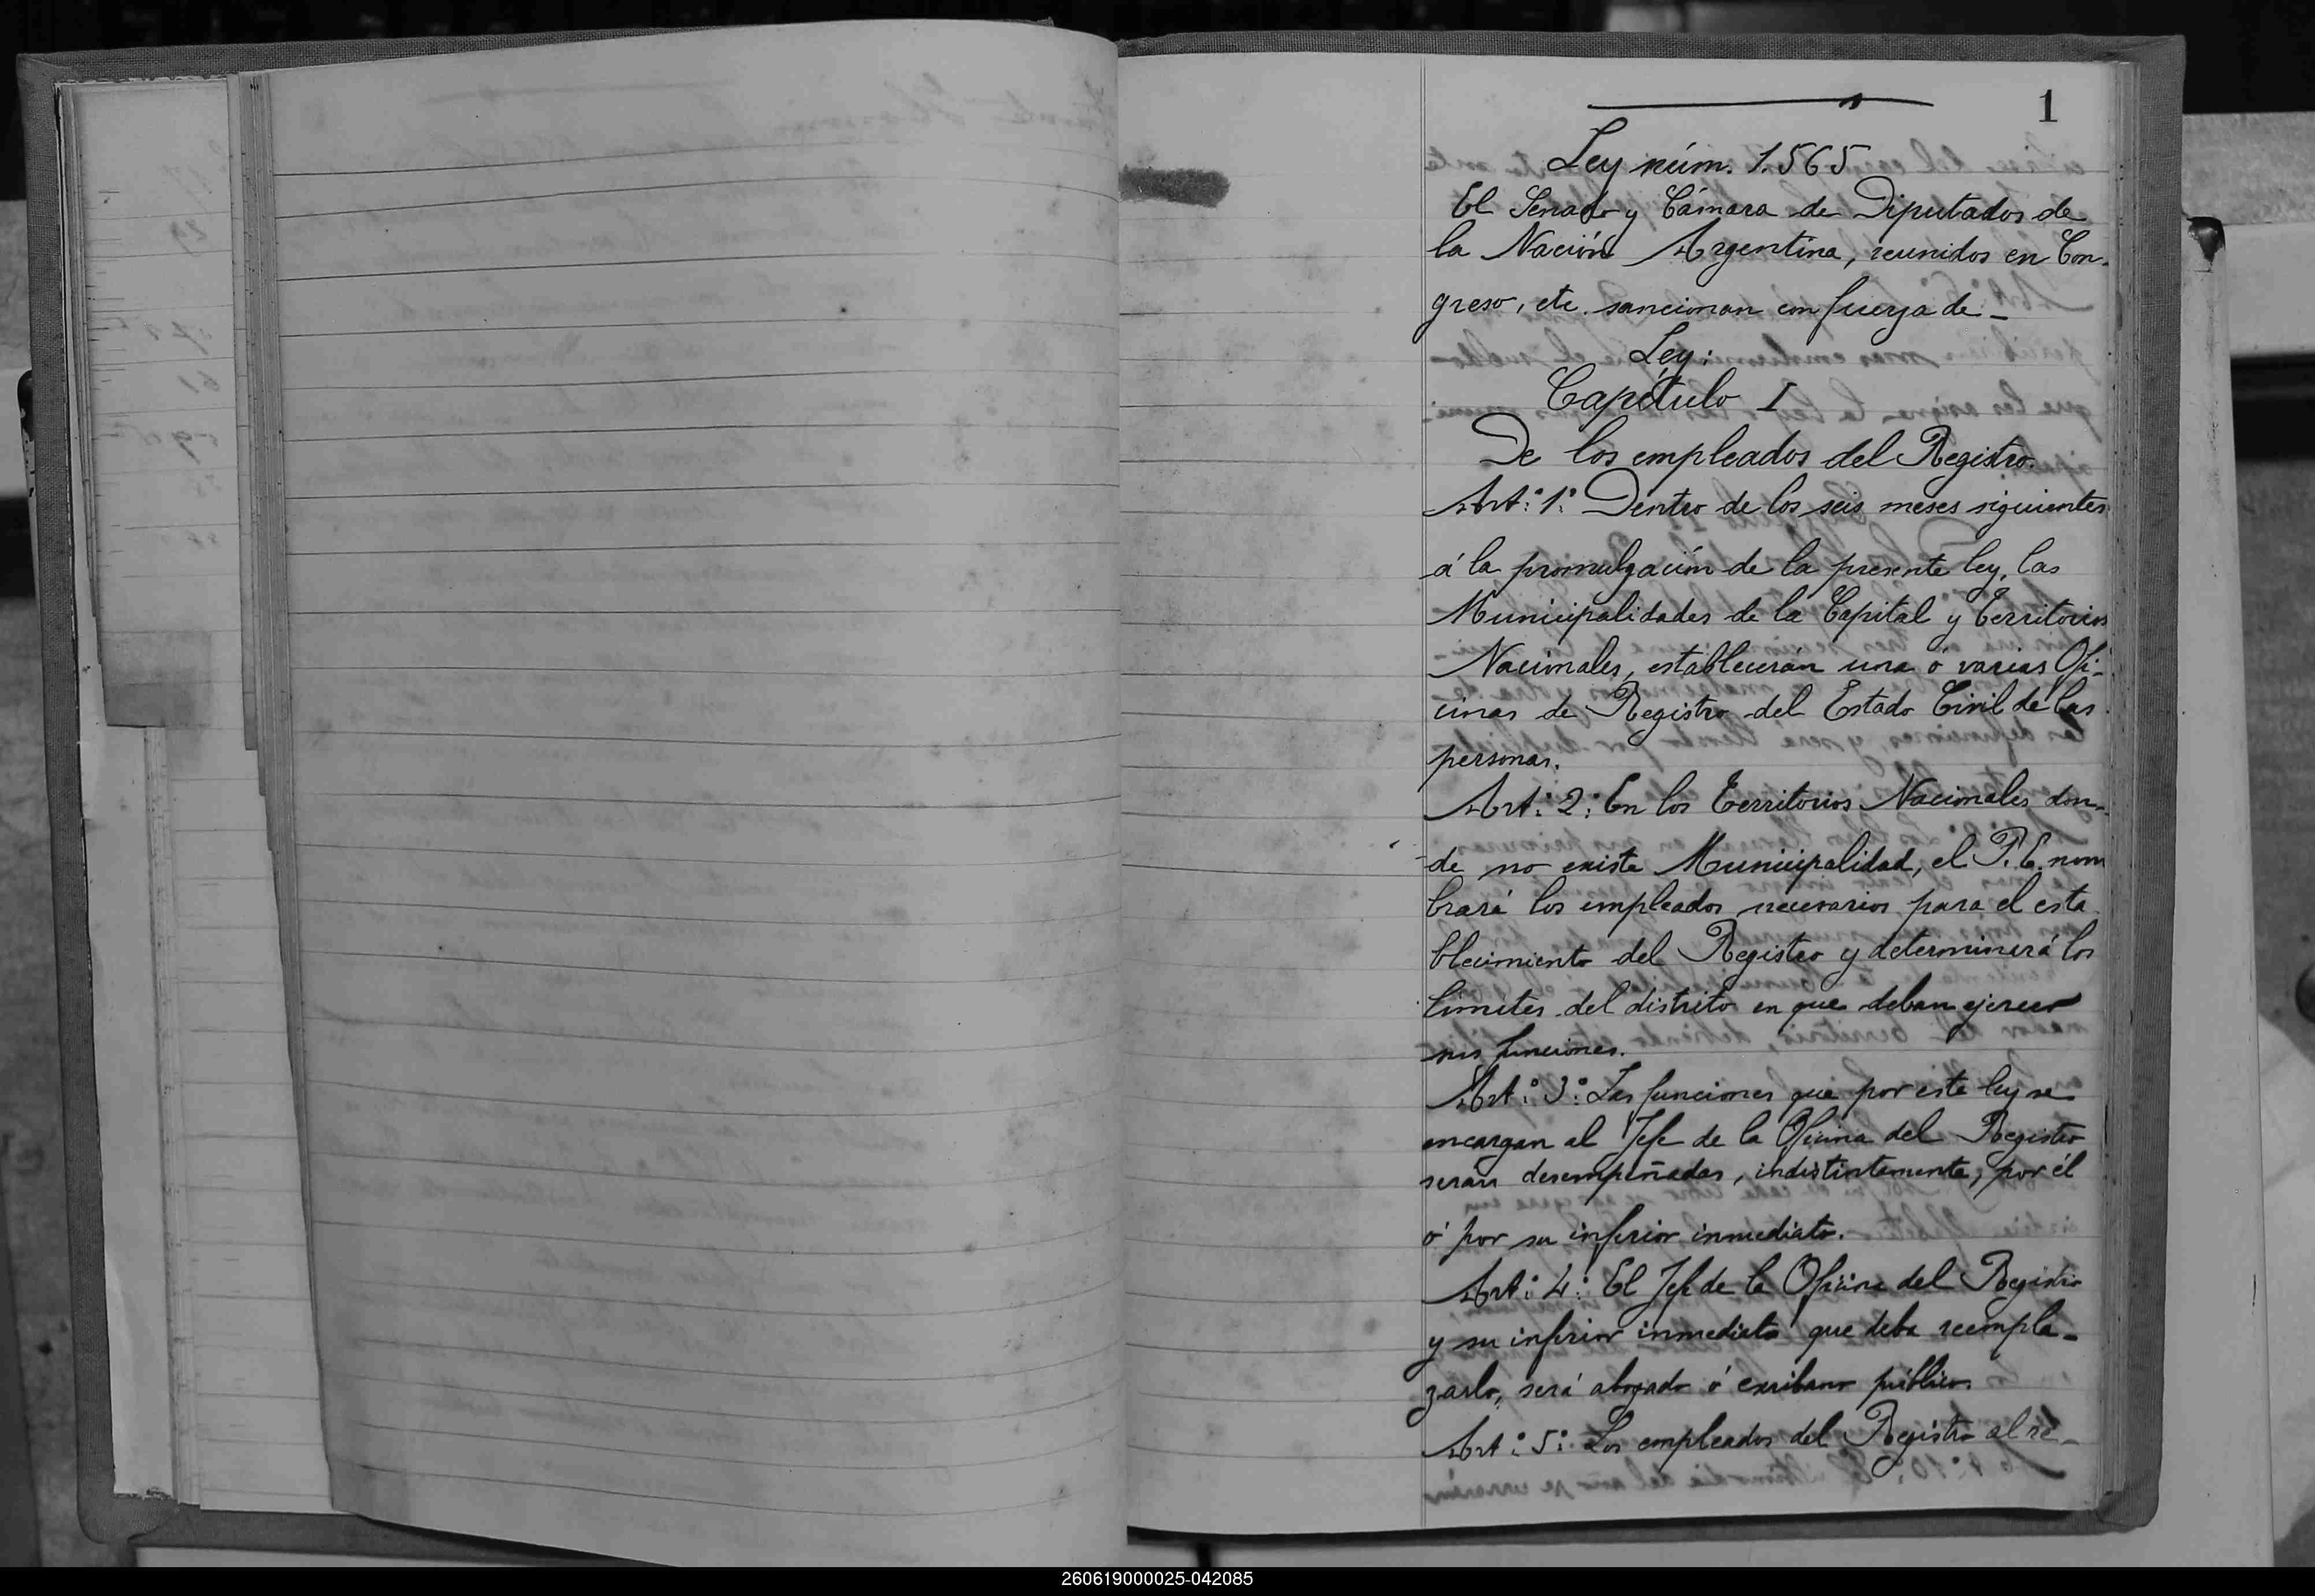 1
Ley núm. 1.565
El Senado y Cámara de Diputados de
la Nación Argentina, reunidos en Con-
greso, etc. sancionan con fuerza de -
Ley:
Capítulo I
De los empleados del Registro.
Art: 1: Dentro de los seis meses siguientes
á la promulgación de la presente ley, las
Municipalidades de la Capital y Territorios
Nacionales, establecerán una ó varias Ofi-
cinas de Registro del Estado Civil de las
personas.
Art: 2: En los Territorios Nacionales don-
de no existe Municipalidad, el P. E. nom
brará los empleados necesarios para el esta
blecimiento del Registro y determinará los
límites del distrito en que deban ejercer
sus funciones.
Art: 3: Las funciones que por este ley se
encargan al Jefe de la Oficina del Registro
serán desempeñadas, indistintamente, por él
ó por su inferior inmediato.
Art: 4: El Jefe de la Oficina del Registro
y su inferior inmediato que deba reempla-
zarlo, será abogado ó escribano público.
Art: 5: Los empleados del Registro al re-
260619000025-042085